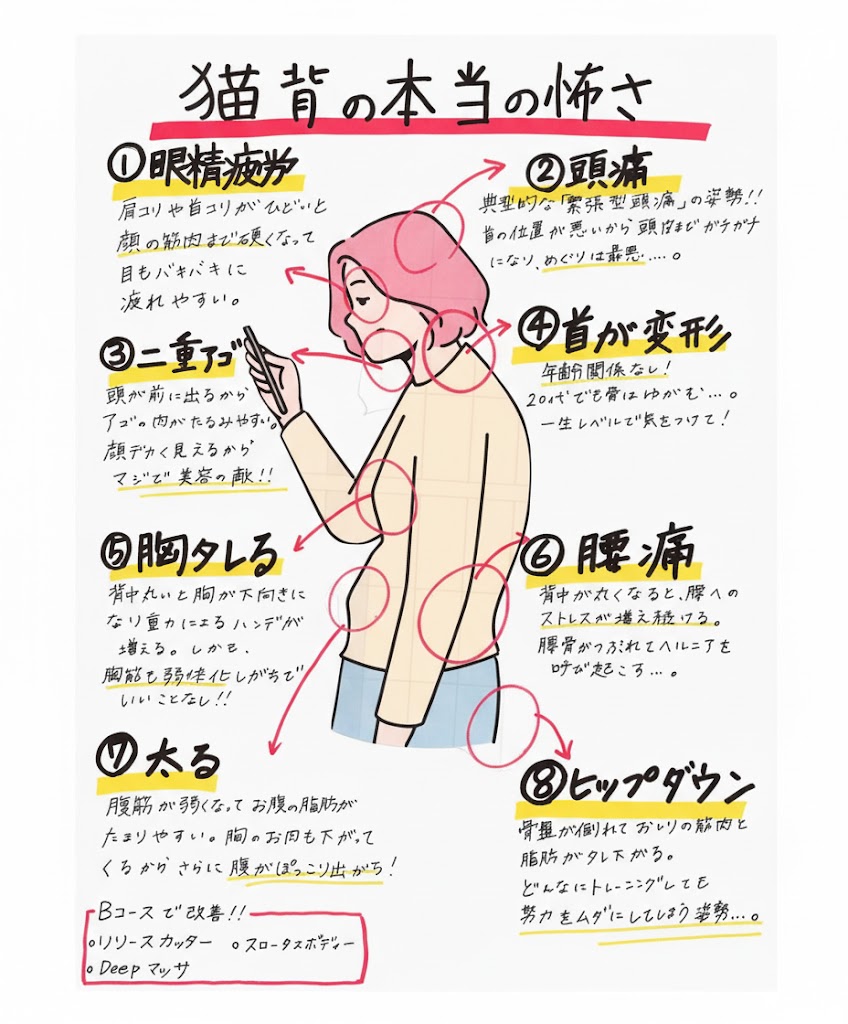 猫背の本当の怖さ
①眼精疲労
肩コリや首コリがひどいと
顔の筋肉まで硬くなって
目もバキバキに
疲れやすい。
②頭痛
典型的な「緊張型頭痛」の姿勢!!
首の位置が悪いから頭皮までガチガチ
になり、めぐりは最悪…。
③二重アゴ
頭が前に出るから
アゴの肉がたるみやすい。
顔デカく見えるから
マジで美容の敵!!
④首が変形
年齢関係なし!
20代でも骨はゆがむ…。
一生レベルで気をつけて!
⑤胸タレる
背中丸いと胸が下向きに
なり重力によるハンデが
増える。しかも、
胸筋も弱体化しがちで
いいことなし!!
⑥腰痛
背中が丸くなると、腰への
ストレスが増え続ける。
腰骨がつぶれてヘルニアを
呼び起こす…。
⑦太る
腹筋が弱くなってお腹の脂肪が
たまりやすい。胸のお肉も下がって
くるからさらに腹がぽっこり出がち!
⑧ヒップダウン
骨盤が倒れておしりの筋肉と
脂肪がタレ下がる。
どんなにトレーニングしても
努力をムダにしてしまう姿勢…。
Bコースで改善!!
○リリースカッター ○スロータスボディー
○Deepマッサ